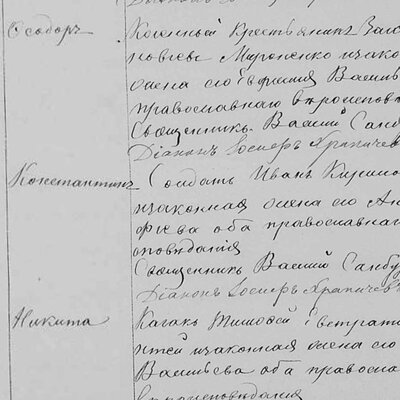 Ѳеодоръ
Казенный крестьянинъ
Мироненко и законная
жена его Евфимія Василь
православнаго вѣроисповѣ
Священникъ Василій Самбу
Діаконъ Іосифъ Храпачев
Константинъ Солдатъ Иванъ Кирил
и законная жена его Ан
фіева оба православнаго
исповѣданія
Священникъ Василій Самбур
Діаконъ Іосифъ Храпачевъ
Никита Казакъ Тимофей Евстрати
и законная жена его
Васильева оба правосла
вѣроисповѣданія